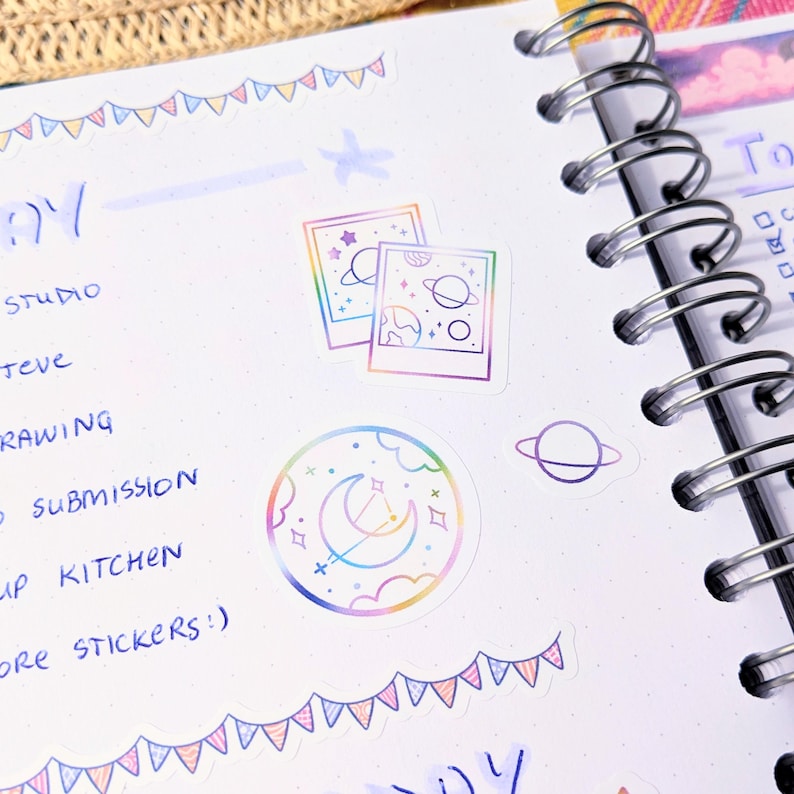 AY
STUDIO
TEVE
RAWING
SUBMISSION
UP KITCHEN
ORE STICKERS:)
To